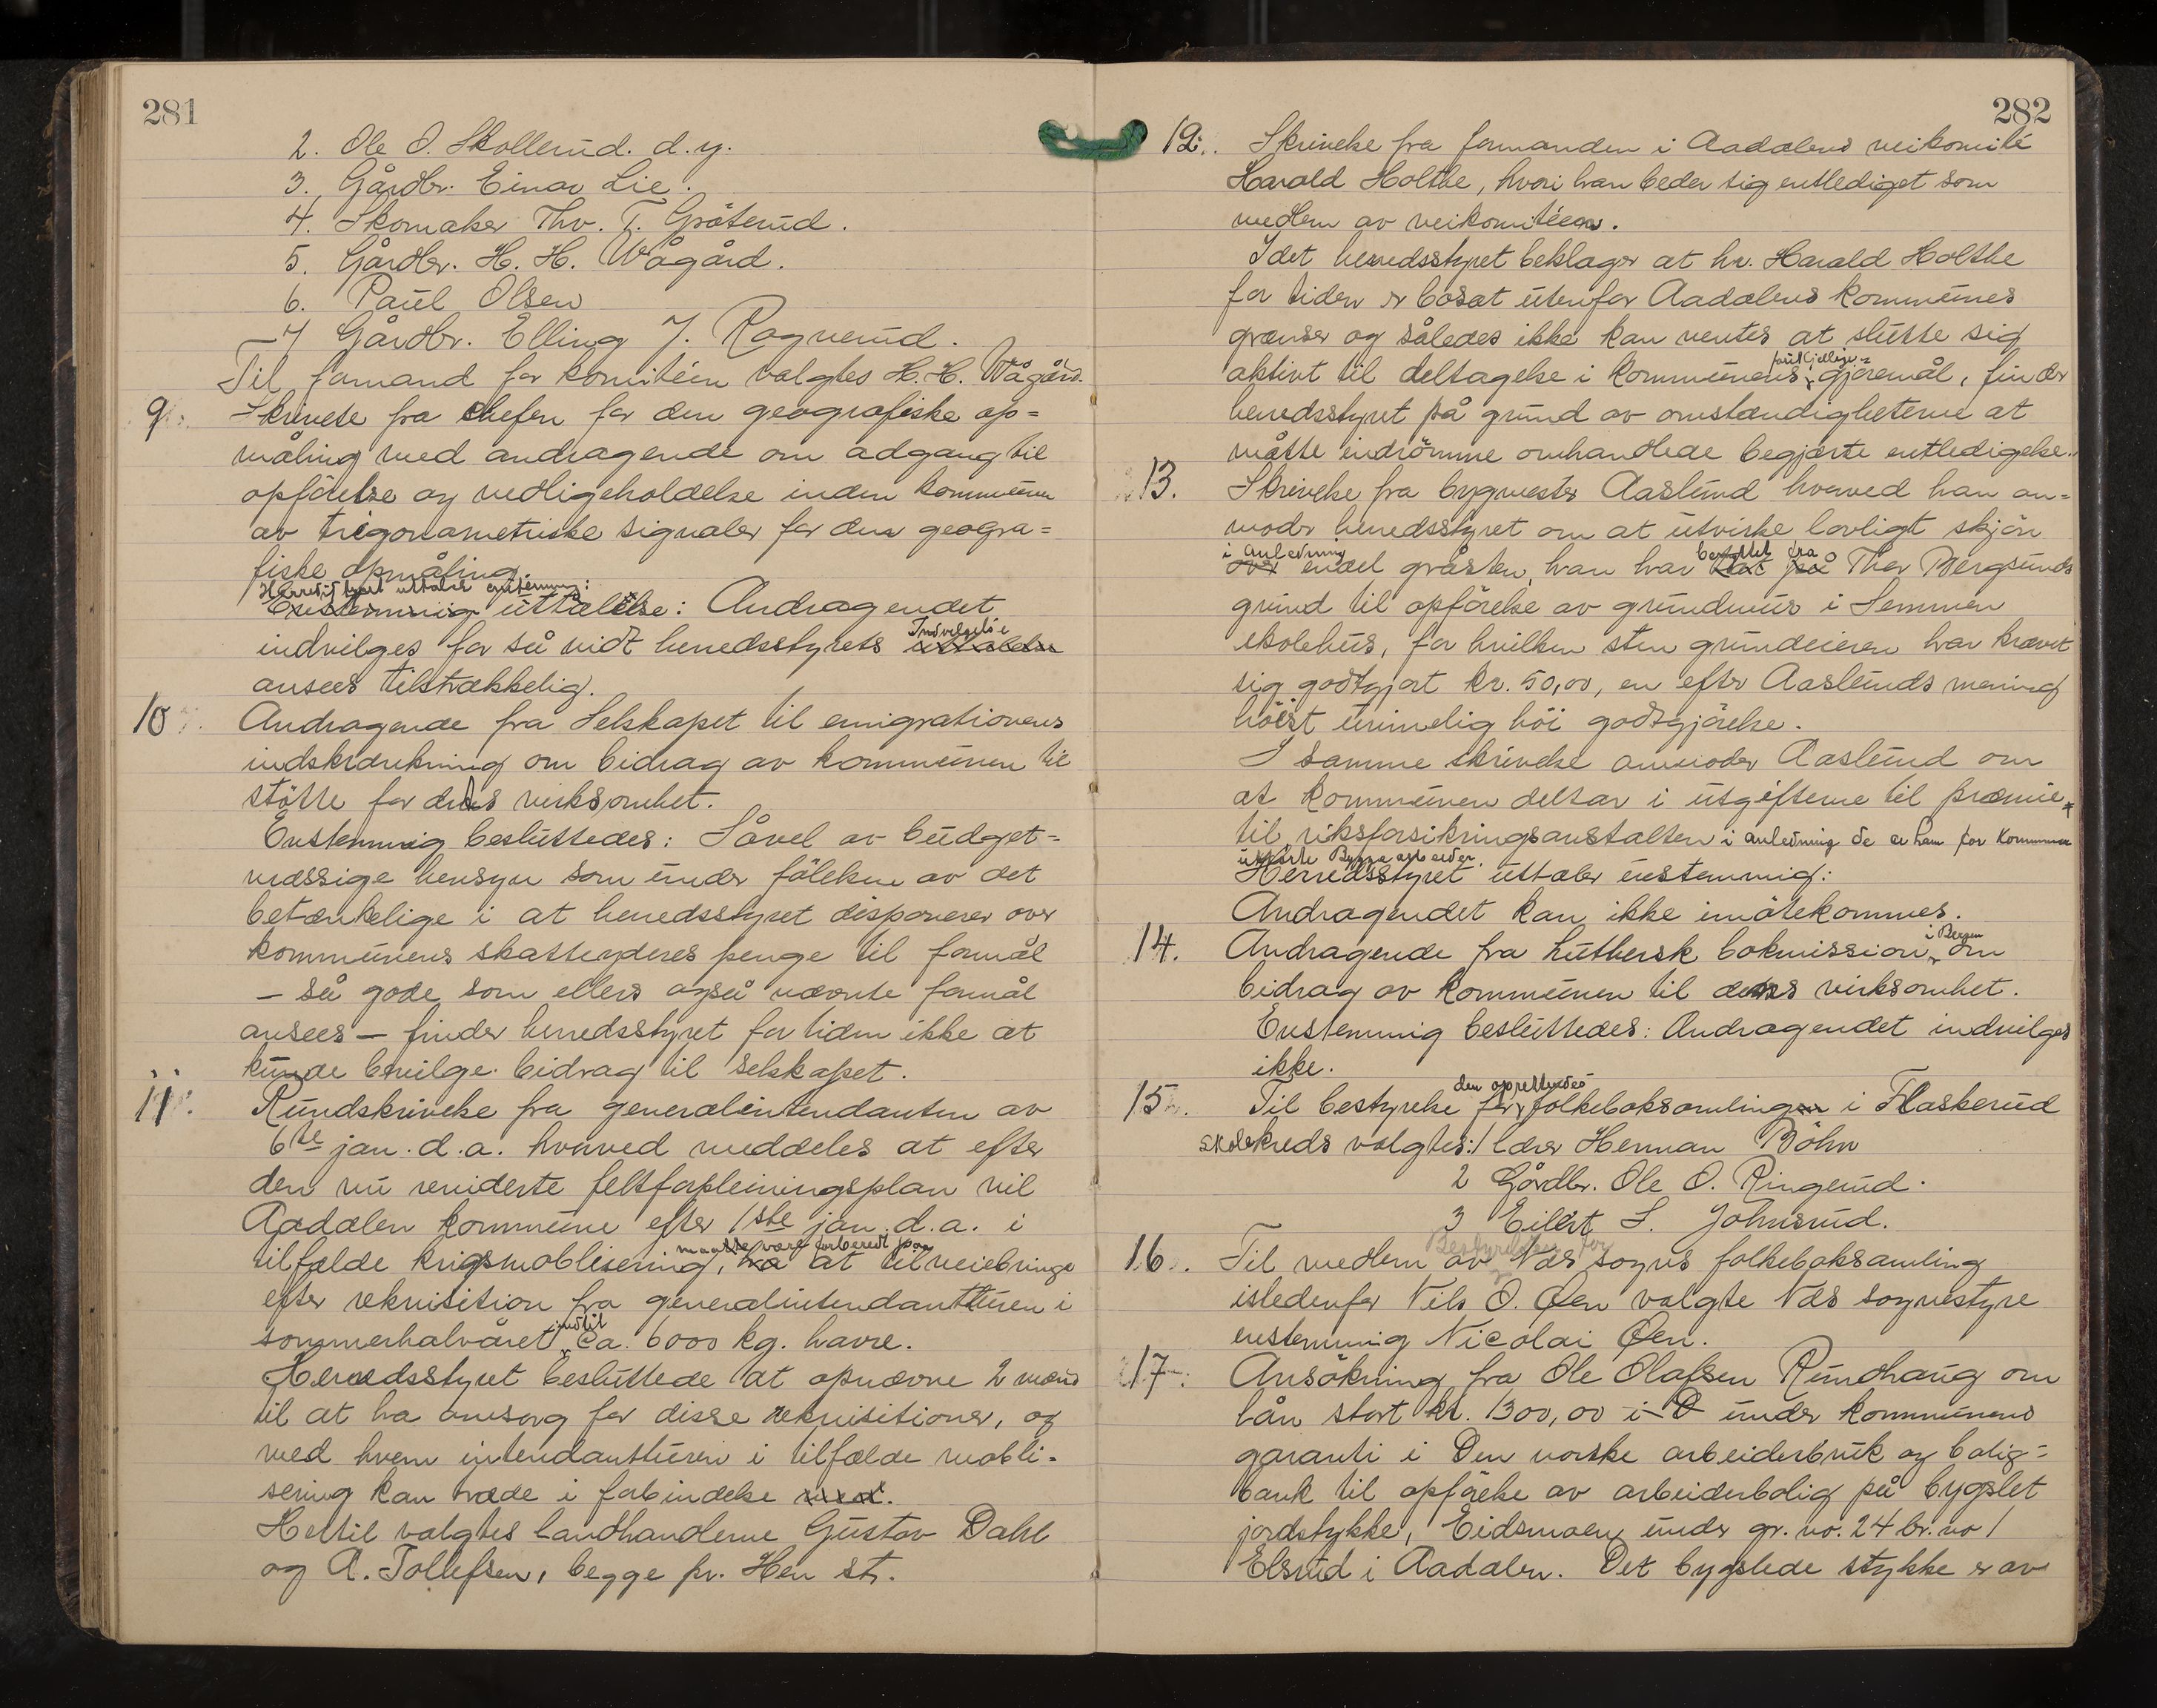 281
2. Ole O. Skollerud. d.y.
3. Gårdbr. Einar Lie.
4. Skomaker Thv. T. Gröterud.
5. Gårdbr. H. H. Wågård.
6. Paul Olsen
7 Gårdbr. Elling J. Ragnerud.
Til formand for komitéen valgtes H. H. Wågård.
9. Skrivelse fra chefen for den geografiske op=
måling med andragende om adgang til
opförelse og vedligeholdelse inden kommunen
av trigonometriske signaler for den geogra=
fiske opmåling.
Enstemmig uttalelse: Andragendet
indvilges for så vidt herredsstyrets Indvilgelse
ansees tilstrækkelig.
10. Andragende fra Selskapet til emigrationens
indskrænkning om bidrag av kommunen til
stötte for dets virksomhet.
Enstemmig besluttedes: Såvel av budget=
mæssige hensyn som under fölelsen av det
betænkelige i at herredsstyret disponerer over
kommunens skatteyderes penge til formål
– så gode som ellers også nævnte formål
ansees – finder herredsstyret for tiden ikke at
kunde bevilge bidrag til selskapet.
11. Rundskrivelse fra generalintendanten av
6te jan. d.a. hvorved meddeles at efter
den nu reviderte feltforpleiningsplan vil
Aadalen kommune efter 1ste jan. d.a. i
maatte være forberedt paa
tilfælde krigsmoblisering, ha at tilveiebringe
efter rekvisition fra generalintendanturen i
indtil
sommerhalvåret ca. 6000 kg. havre.
Herredsstyret besluttede at opnævne 2 mænd
til at ha omsorg for disse rekvisitioner, og
med hvem intendanturen i tilfælde mobli=
sering kan træde i forbindelse med.
Hertil valgtes landhandlerne Gustav Dahl
og A. Tollefsen, begge pr. Hen st.
282
12. Skrivelse fra formanden i Aadalens veikomité
Harald Holthe, hvori han beder sig entlediget som
medlem av veikomitéen.
Idet herredsstyret beklager at hr. Harald Holthe
for tiden er bosat utenfor Aadalens kommunes
grænser og således ikke kan ventes at slutte sig
aktivt til deltagelse i kommunens gjöremål, finder
herredsstyret på grund av omstændigheterne at
måtte indrömme omhandlede begjærte entledigelse.
13. Skrivelse fra bygmester Aaslund hvorved han an=
moder herredsstyret om at utvirke lovligt skjön
i anledning benyttet fra
over endel gråsten, han har tat på Thor Bergsunds
grund til opförelse av grundmur i Semmen
skolehus, for hvilken sten grundeieren har krævet
sig godtgjort kr. 50,00, en efter Aaslunds mening
höist urimelig höi godtgjörelse.
I samme skrivelse anmoder Aaslund om
at kommunen deltar i utgifterne til præmie
til riksforsikringsanstalten i anledning de av ham for Kommunen
utförte Bygge arbeider.
Herredsstyret uttaler enstemmig:
Andragendet kan ikke imötekommes.
i Bergen
14. Andragende fra Luthersk bokmission om
bidrag av kommunen til dens virksomhet.
Enstemmig besluttedes: Andragendet indvilges
ikke.
den oprettedes
15. Til bestyrelse for folkeboksamlingen i Flaskerud
skolekreds valgtes: 1 lærer Herman Böhn
2 Gårdbr. Ole O. Ringerud.
3 Eilert S. Johnsrud.
Bestyrelsen for
16. Til medlem av Nes sogns folkeboksamling
istedenfor Nils O. Øen valgte Nes sognestyre
enstemmig Nicolai Øen.
17. Ansökning fra Ole Olafsen Rundhaug om
lån stort kr. 1300,00 i D under kommunens
garanti i Den norske arbeiderbruk og bolig=
bank til opförelse av arbeiderbolig på bygslet
jordstykke, Eidsmoen under gr. no. 24 br. no 1
Elsrud i Aadalen. Det bygslede stykke er av